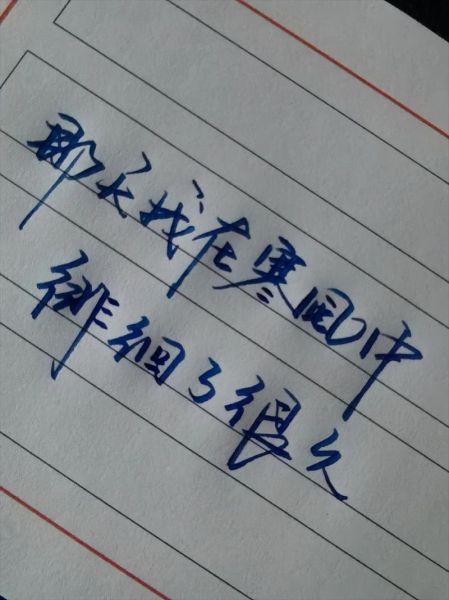 那天我在寒风中
徘徊了很久